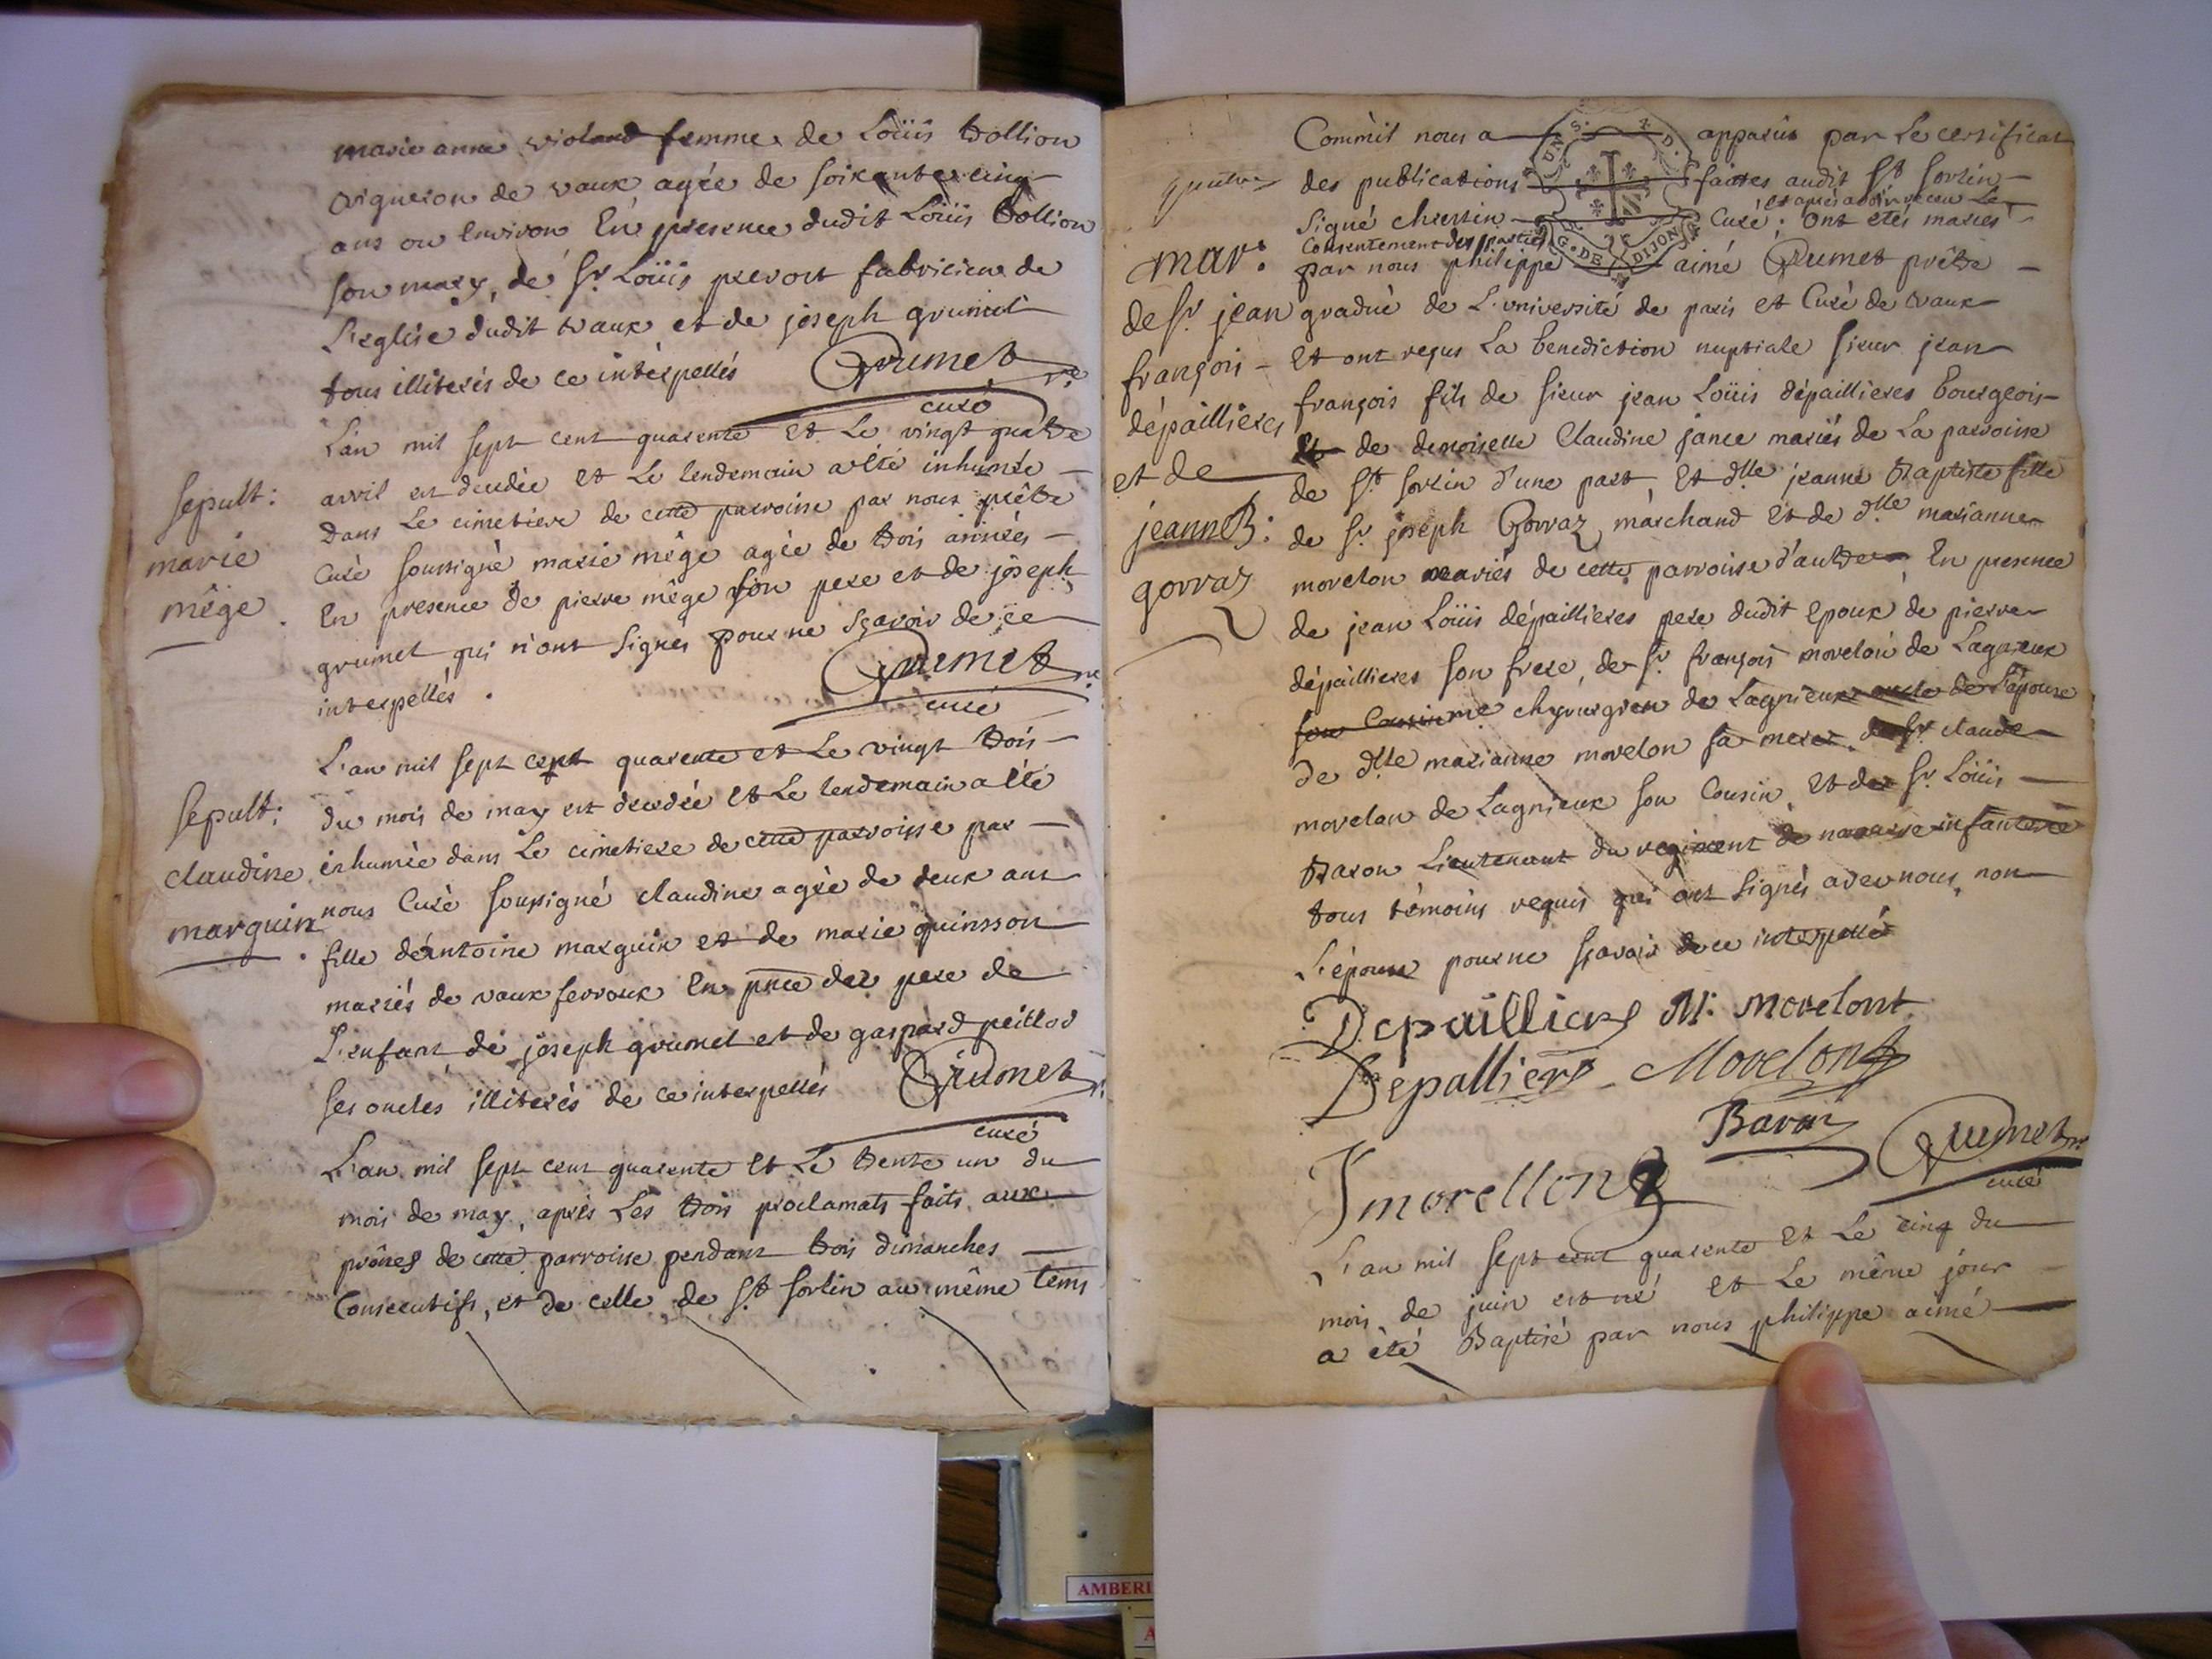 marie anne violand femme de Loüis Vollion
vigneron de vaux agée de soixante cinq
ans ou environ En presence dudit Loüis Vollion
son mary, de Sr. Loüis prevost fabricien de
L'eglise dudit vaux et de joseph grumet
tous illiterés de ce interpellés Grumet
curé
L'an mil sept cent quarente Et Le vingt quatre
avril est decedée et Le lendemain a été inhumée
Dans Le cimetiere de cette parroisse par nous prêtre
Curé soussigné marie mége agée de trois années
En presence de pierre mêge son pere et de joseph
grumet qui n'ont signés pour ne sçavoir de ce
interpellés. Grumet
curé
sepult:
marie
mêge.
L'an mil sept cent quarente et Le vingt trois
du mois de may est decedée Et Le lendemain a été
inhumée dans Le cimetiere de cette parroisse par
nous Curé soussigné claudine agée de deux ans
fille d'antoine marguin et de marie quinsson
mariés de vaux fevroux En pnce des pere de
L'enfant de joseph grumet et de gaspard peillod
ses oncles illiterés de ce interpellés Grumet
curé
sepult:
claudine
marguin.
L'an mil sept cent quarente Et Le trente un du
mois de may, aprés Les trois proclamats faits aux
prônes de cette parroisse pendant trois dimanches
Consecutifs, et de celle de St sorlin au même tems
Comm'il nous a apparu par Le certificat
des publications faites audit St sorlin
signé chrestin Curé; et aprés avoir receu Le
Consentement des parties ont etés mariés
par nous philippe aimé Grumet prêtre
gradué de L'université de paris et Curé de vaux
Et ont reçus La benediction nuptiale sieur jean
françois fils de sieur jean Loüis dépaillieres bourgeois
Et de demoiselle Claudine jance mariés de La parroisse
de St sorlin d'une part Et dlle jeanne Baptiste fille
de Sr. joseph Gorraz marchand et de dlle marianne
morelon mariés de cette parroisse d'autre En presence
de jean Loüis dépaillieres pere dudit epoux de pierre
dépaillieres son frere, de Sr. françois morelon de Lagnieux
son Cousin me chyrurgien de Lagnieux oncle de L'épouse
de dlle marianne morelon sa mere, de Sr claude
morelon de Lagnieux son Cousin, Et de Sr. Loüis
Baron Lieutenant du regiment de navarre infanterie
tous témoins requis qui ont signés avec nous, non
L'épouse pour ne sçavoir de ce interpellée
mar.
de Sr. jean
françois
dépaillieres
et de
jeanne B:
gorraz
UNS.
G. DE DIJON
Depaillieres M. Morelont
Depallieres Morelont
Baron
J morellon Grumet
curé
L'an mil sept cent quarente Et Le cinq du
mois de juin est né et Le même jour
a été Baptisé par nous philippe aimé
AMBERI